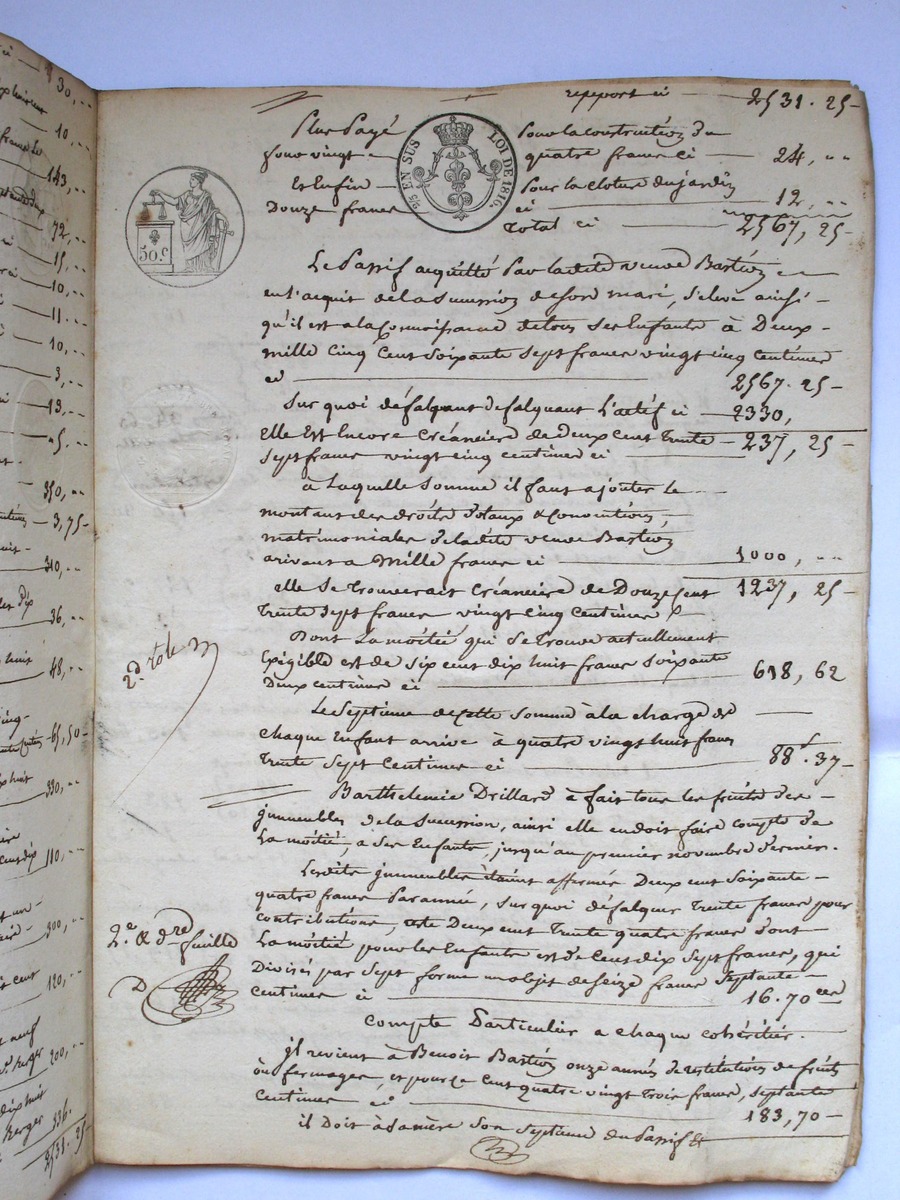 report ci — 2531. 25
Plus Payé pour la construction du
four vingt quatre francs ci — 24, ..
Et Enfin pour la cloture du jardin
Douze francs ci — 12, ..
Total ci — 2567, 25
EN SUS LOI DE 1816.
50.c
Le Passif acquitté par ladite veuve Bastion
en l'acquit de la sucession de son mari, s'eleve ainsi
qu'il est a la Connoissance de tous ses Enfants à Deux
mille Cinq Cent Soixante Sept francs vingt cinq Centimes
ci — 2567. 25
Sur quoi défalquant defalquant L'actif ci — 2330,
elle Est Encore Créanciere de deux cent trente — 237, 25
Sept francs vingt cinq centimes ci
a Laquelle Somme il faut ajouter le
montant des droits dotaux & Conventions
matrimoniales de ladite veuve Bastion
arivant a Mille francs ci — 1000, ..
elle Se trouverait Créanciere de Douze cent 1237, 25
trente Sept francs vingt cinq centimes
Dont La moitié qui se trouve actuellement
Exigible est de Six cent dix huit francs Soixante
Deux centimes ci — 618, 62
2d. rôle
Le Septieme de cette Somme à la charge de
chaque Enfant arrive à quatre vingt huit francs
trente Sept Centimes ci — 88f. 37
Barthelemie Drillard à fait tous les fruits des
immeubles de la sucession, ainsi elle en doit faire compte de
La moitié, a Ses Enfants, jusqu'au premier novembre dernier.
Lesdits immeubles étaint affermés Deux cent Soixante
quatre francs Par année, sur quoi défalquer trente francs pour
contributions, reste Deux cent trente quatre francs dont
La moitié pour les Enfants est de Cent dix Sept francs, qui
Divisés par Sept forme un objet de Seize francs Septante
centimes ci — 16. 70 ces
2e. & 3me feuille
D
Compte Particulier a chaque cohéritier.
il revient à Benoit Bastion onze années de restitutions de fruits
ou fermages, et pour ce Cent quatre vingt trois francs, septante
centimes ci — 183, 70
il Doit à sa mère Son Septieme du Passif Et
30, ..
10, ..
143, ..
72, ..
15, ..
10, ..
11. ..
10, ..
3, ..
13, ..
45, ..
350, ..
3, 75
310, ..
36, ..
48, ..
65, 50
330, ..
110, ..
300, ..
120, ..
200, ..
336.
2531. 25